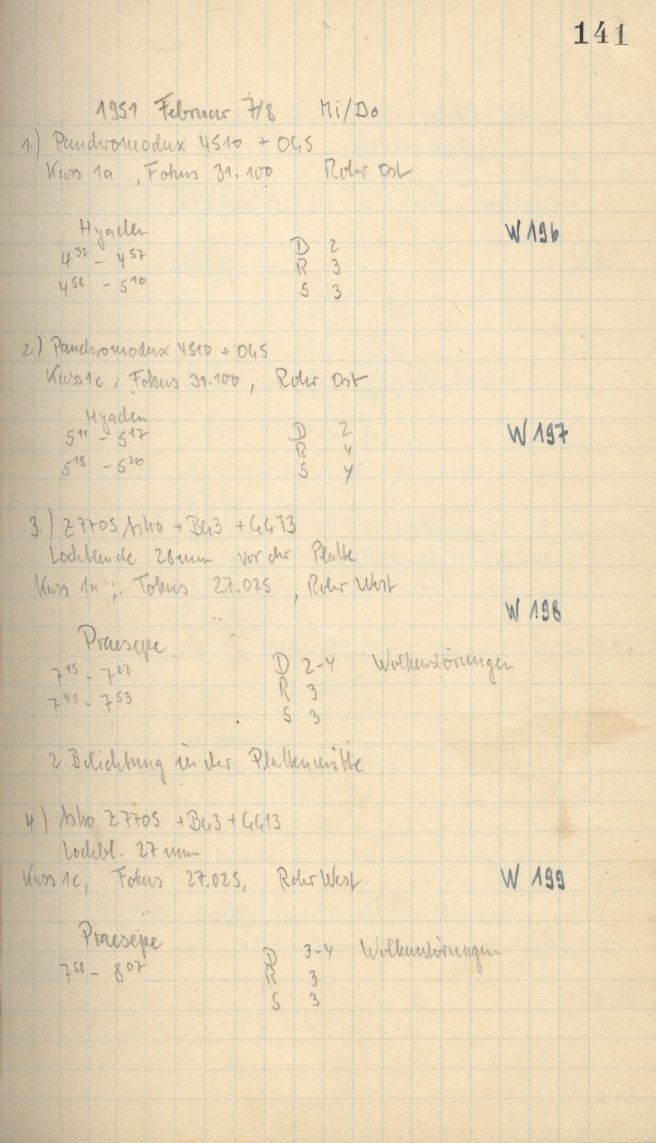 141
1951 Februar 7/8 Mi/Do
1.) Panchromodux 4510 + OG5
Kass 1a, Fokus 31.100 Rohr Ost
Hyaden W 196
4³² - 4⁵⁷ D 2
R 3
4⁵⁸ - 5¹⁰ S 3
2.) Panchromodux 4510 + OG5
Kass 1c, Fokus 31.100, Rohr Ost
Hyaden
5¹¹ - 5¹⁷ D 2 W 197
R 4
5¹⁸ - 5²⁰ S 4
3.) Z7705 Astro + BG3 + GG13
Lochblende 28mm vor der Platte
Kass 1a, Fokus 27.025, Rohr West
W 198
Praesepe
7¹⁵ - 7²⁷ D 2-4 Wolkenstörungen
7⁴¹ - 7⁵³ R 3
S 3
2. Belichtung in der Plattenmitte
4.) Astro Z7705 + BG3 + GG13
Lochbl. 27 mm
Kass 1c, Fokus 27.025, Rohr West W 199
Praesepe
7⁵⁸ - 8⁰⁷ D 3-4 Wolkenstörungen
R 3
S 3